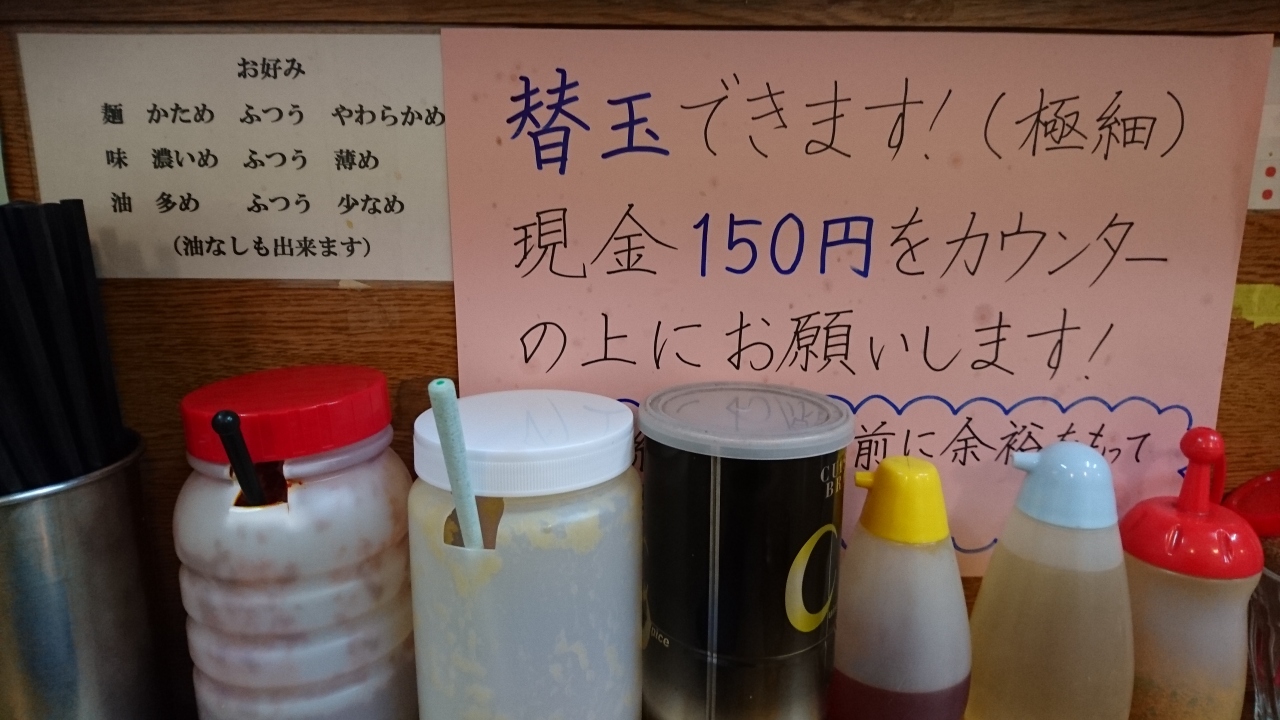 お好み
麺 かため ふつう やわらかめ
味 濃いめ ふつう 薄め
油 多め ふつう 少なめ
(油なしも出来ます)
替玉できます!(極細)
現金150円をカウンター
の上にお願いします!
前に余裕をもって